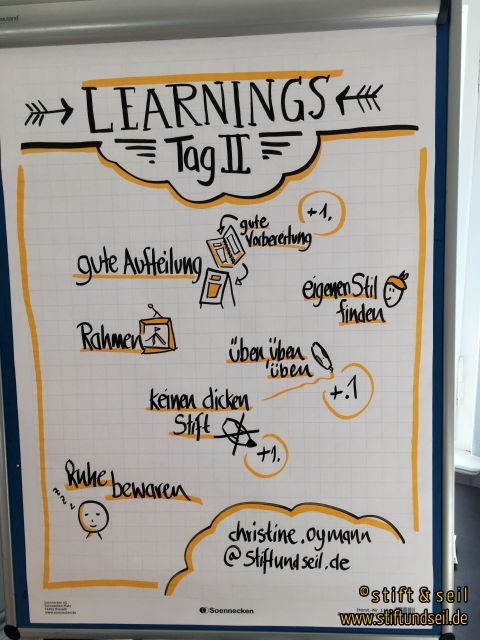 LEARNINGS
Tag II
+1.
gute
Vorbereitung
gute Aufteilung
eigenen Stil
finden
Rahmen
üben, üben
üben
+.1
keinen dicken
Stift
+1.
Ruhe
bewaren
zzz
christine.oymann
@stiftundseil.de
Soennecken
© stift & seil
www.stiftundseil.de